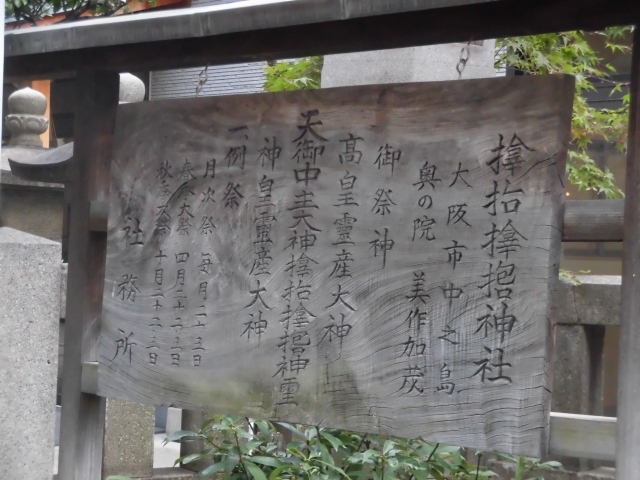 𪮷抬𪮷𪮇神社
大阪市中之島
奥の院 美作加茂
御祭神
高皇靈産大神
天御中主大神𪮷抬𪮷𪮇神霊
神皇靈産大神
一、例祭
月次祭 毎月二十三日
春季大祭 四月
秋季大祭 十月
社務所